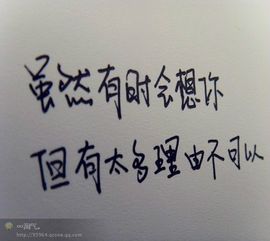 虽然有时会想你
但有太多理由不可以
淘气。
http://93964.qzone.qq.com